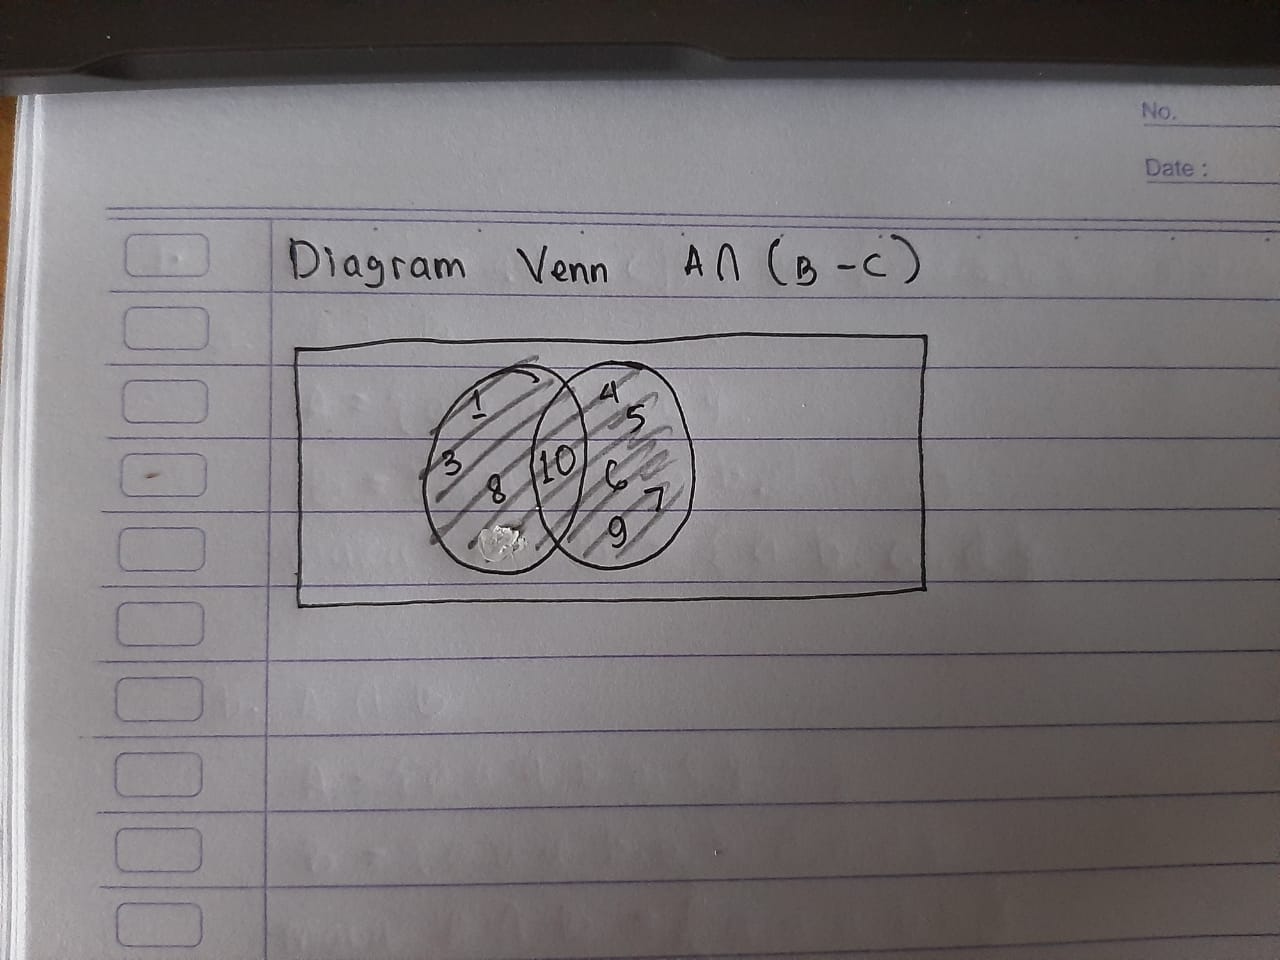 No.
Date :
Diagram Venn A∩ (B - C)
1 4
5
3 10 6
8 7
9